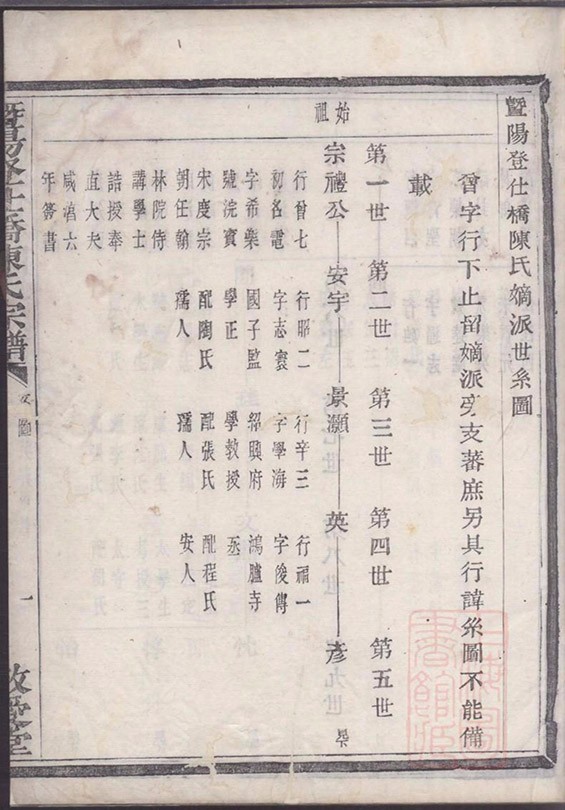 暨陽登仕橋陳氏嫡派世系圖
曾字行下止留嫡派旁支蕃庶另具行諱系圖不能備
載
第一世 第二世 第三世 第四世 第五世
始祖
宗禮公 安宇 景灝 英 彥
行曾七
初名電
字希樂
號浣賓
宋度宗
朝任翰
林院侍
講學士
誥授奉
直大夫
咸淳六
年簽書
行昭二
字志寰
國子監
學正
配陶氏
孺人
行辛三
字學海
紹興府
學教授
配張氏
孺人
行福一
字俊傅
鴻臚寺
丞
配程氏
安人
暨陽登仕橋陳氏宗譜
一
敦睦堂